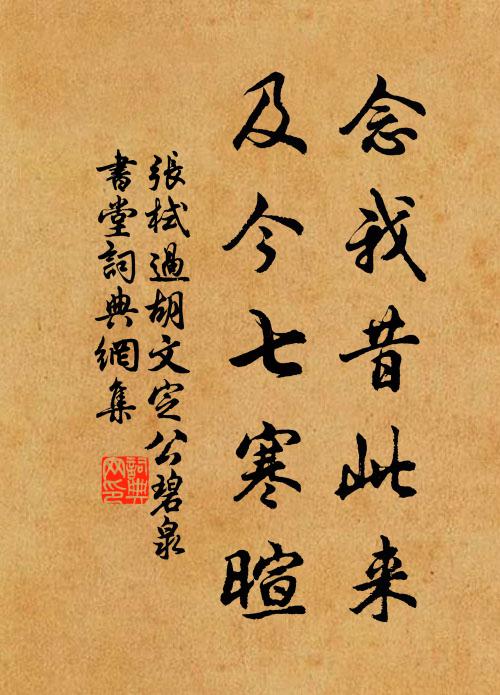 念我昔此来
及今七寒暄
張栻過胡文定公碧泉
書堂詞典網集
詞典
网印